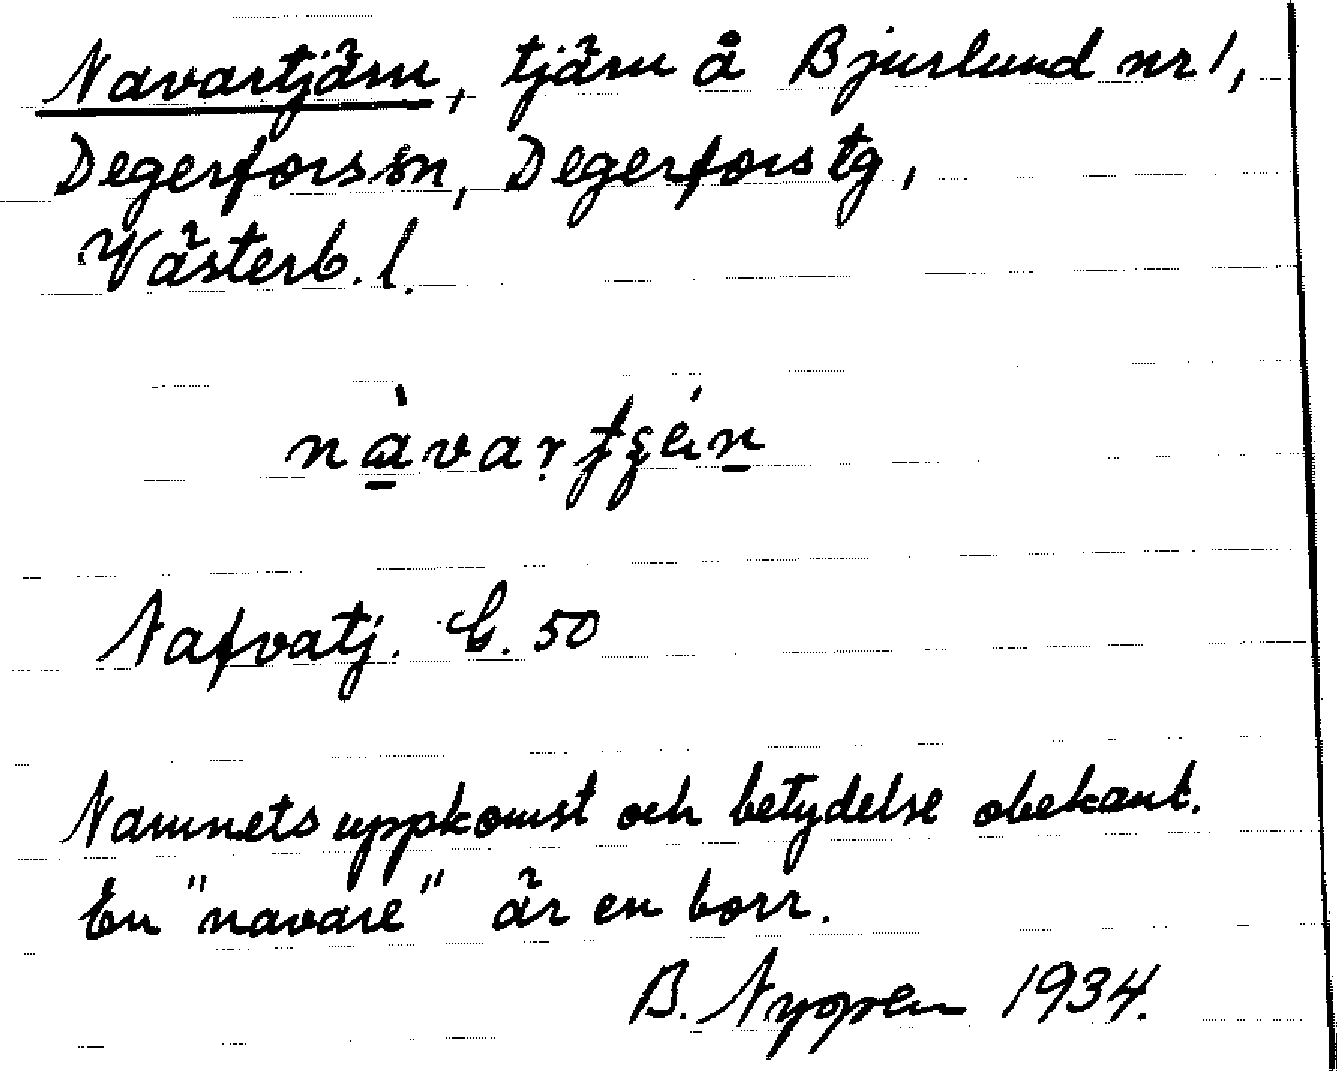 Navartjärn, tjärn å Bjurlund nr 1,
Degerfors sn, Degerfors tg,
Västerb. l.
Nafvatj. G. 50
Namnets uppkomst och betydelse obekant.
En "navare" är en borr.
B. Nygren 1934.